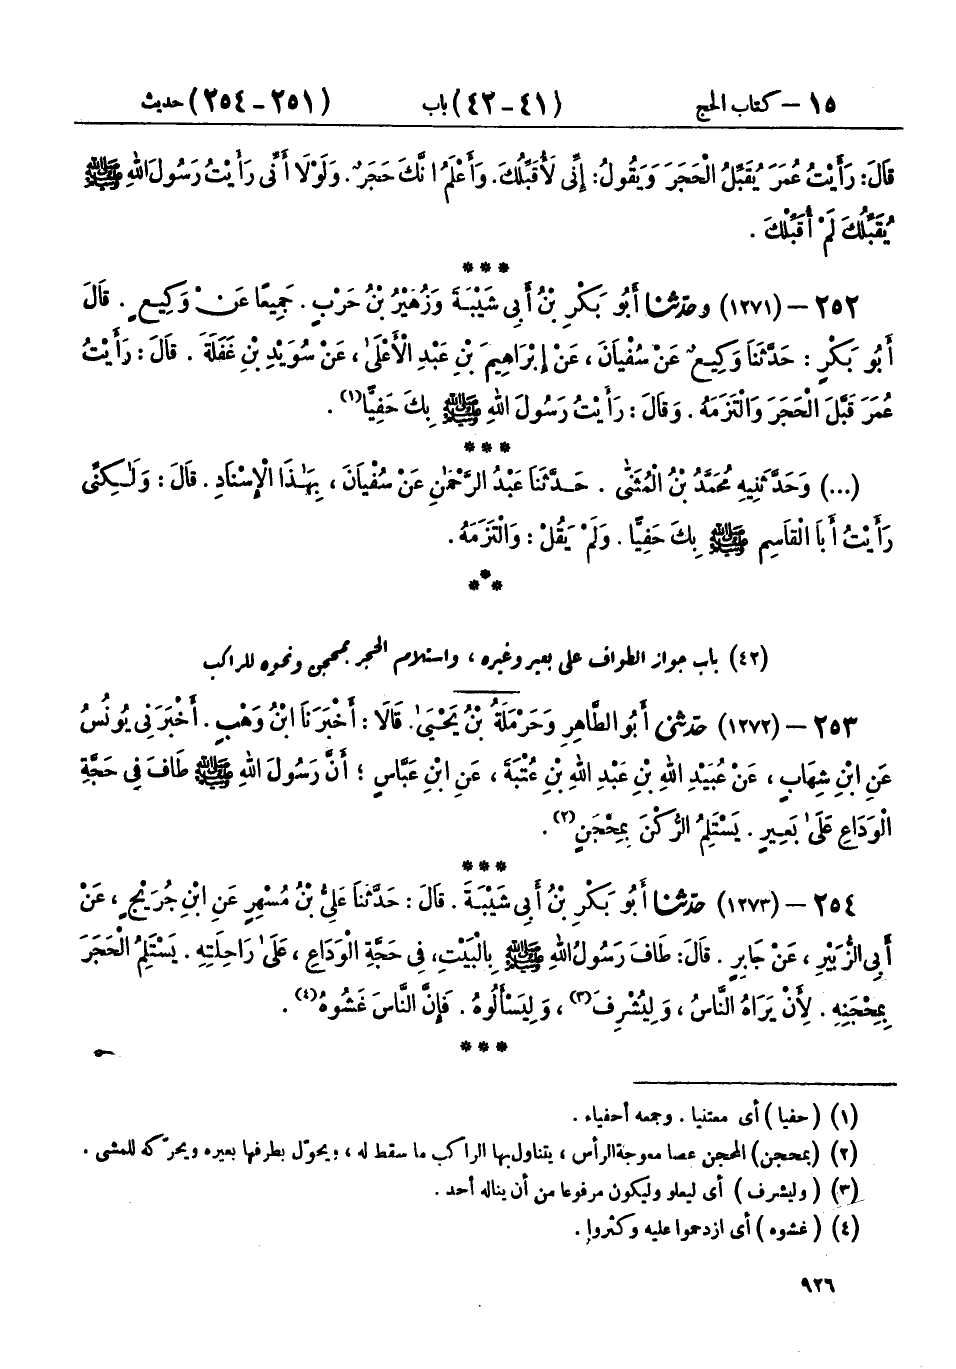 ١٥ – كتاب الحج (٤١-٤٢) باب (٢٥١-٢٥٤) حديث
قَالَ: رَأَيْتُ عُمَرَ يُقَبِّلُ الْحَجَرَ وَيَقُولُ: إِنِّى لَأُقَبِّلُكَ. وَأَعْلَمُ انَّكَ حَجَرٌ. وَلَوْلَا أَنِّى رَأَيْتُ رَسُولَ اللهِ ﷺ
يُقَبِّلُكَ لَمْ أُقَبِّلْكَ .
***
٢٥٢ – (١٢٧١) وحدثنا أَبُو بَكْرِ بْنُ أَبِى شَيْبَةَ وَزُهَيْرُ بْنُ حَرْبٍ . جَمِيعًا عَنْ وَكِيعٍ . قَالَ
أَبُو بَكْرٍ : حَدَّثَنَا وَكِيعٌ عَنْ سُفْيَانَ ، عَنْ إِبْرَاهِيمَ بْنِ عَبْدِ الْأَعْلَىٰ ، عَنْ سُوَيْدِ بْنِ غَفَلَةَ . قَالَ : رَأَيْتُ
عُمَرَ قَبَّلَ الْحَجَرَ وَالْتَزَمَهُ . وَقَالَ : رَأَيْتُ رَسُولَ اللهِ ﷺ بِكَ حَفِيًّا(١) .
***
(...) وَحَدَّثَنِيهِ مُحَمَّدُ بْنُ الْمُثَنَّىٰ . حَدَّثَنَا عَبْدُ الرَّحْمَٰنِ عَنْ سُفْيَانَ ، بِهَٰذَا الْإِسْنَادِ . قَالَ : وَلَٰكِنِّى
رَأَيْتُ أَبَا الْقَاسِمِ ﷺ بِكَ حَفِيًّا . وَلَمْ يَقُلْ : وَالْتَزَمَهُ .
***
(٤٢) باب جواز الطواف على بعير وغيره ، واستلام الحجر بمحجن ونحوه للراكب
٢٥٣ – (١٢٧٢) حدثنى أَبُو الطَّاهِرِ وَحَرْمَلَةُ بْنُ يَحْيَىٰ. قَالَا : أَخْبَرَنَا ابْنُ وَهْبٍ . أَخْبَرَنِى يُونُسُ
عَنِ ابْنِ شِهَابٍ ، عَنْ عُبَيْدِ اللهِ بْنِ عَبْدِ اللهِ بْنِ عُتْبَةَ ، عَنِ ابْنِ عَبَّاسٍ ؛ أَنَّ رَسُولَ اللهِ ﷺ طَافَ فِى حَجَّةِ
الْوَدَاعِ عَلَىٰ بَعِيرٍ . يَسْتَلِمُ الرُّكْنَ بِمِحْجَنٍ(٢) .
***
٢٥٤ – (١٢٧٣) حدثنا أَبُو بَكْرِ بْنُ أَبِى شَيْبَةَ . قَالَ : حَدَّثَنَا عَلِىُّ بْنُ مُسْهِرٍ عَنِ ابْنِ جُرَيْجٍ ، عَنْ
أَبِى الزُّبَيْرِ ، عَنْ جَابِرٍ . قَالَ: طَافَ رَسُولُ اللهِ ﷺ بِالْبَيْتِ، فِى حَجَّةِ الْوَدَاعِ ، عَلَىٰ رَاحِلَتِهِ . يَسْتَلِمُ الْحَجَرَ
بِمِحْجَنِهِ . لِأَنْ يَرَاهُ النَّاسُ ، وَلِيُشْرِفَ(٣) ، وَلِيَسْأَلُوهُ . فَإِنَّ النَّاسَ غَشُوهُ(٤) .
***
(١) (حفيا) أى معتنيا . وجمعه أحفياء .
(٢) (بمحجن) المحجن عصا معوجة الرأس ، يتناول بها الراكب ما سقط له ، ويحوّل بطرفها بعيره ويحرّكه للمشى .
(٣) (وليشرف) أى ليعلو وليكون مرفوعا من أن يناله أحد .
(٤) (غشوه) أى ازدحموا عليه وكثروا .
٩٢٦